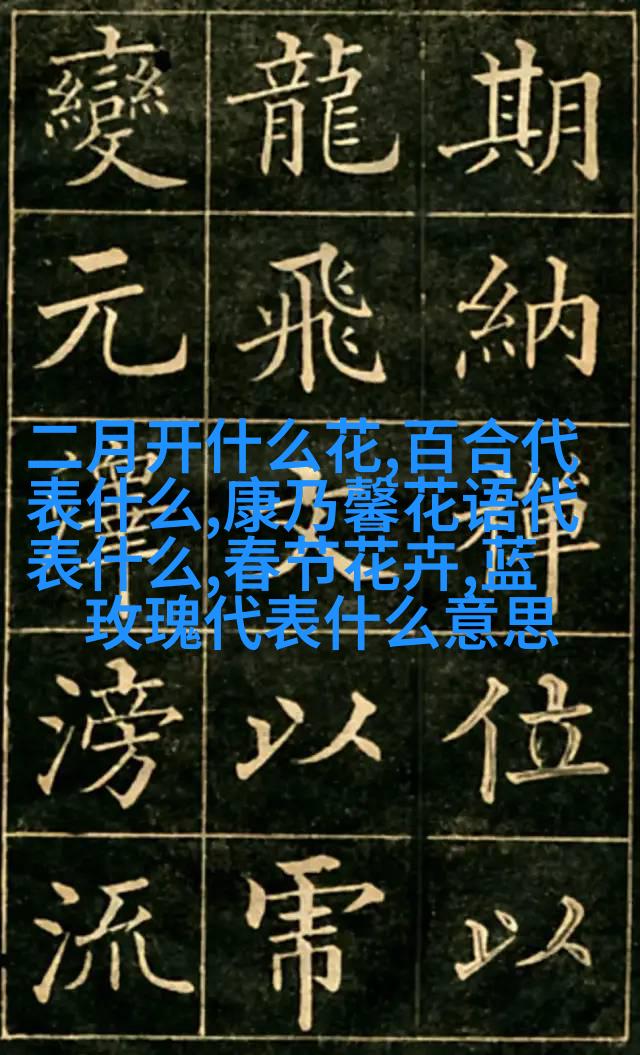 期納禪位以
龍飛文以虎
變元澤滂流
二月开什么花,百合代
表什么,康乃馨花语代
表什么,春节花卉,蓝
玫瑰代表什么意思